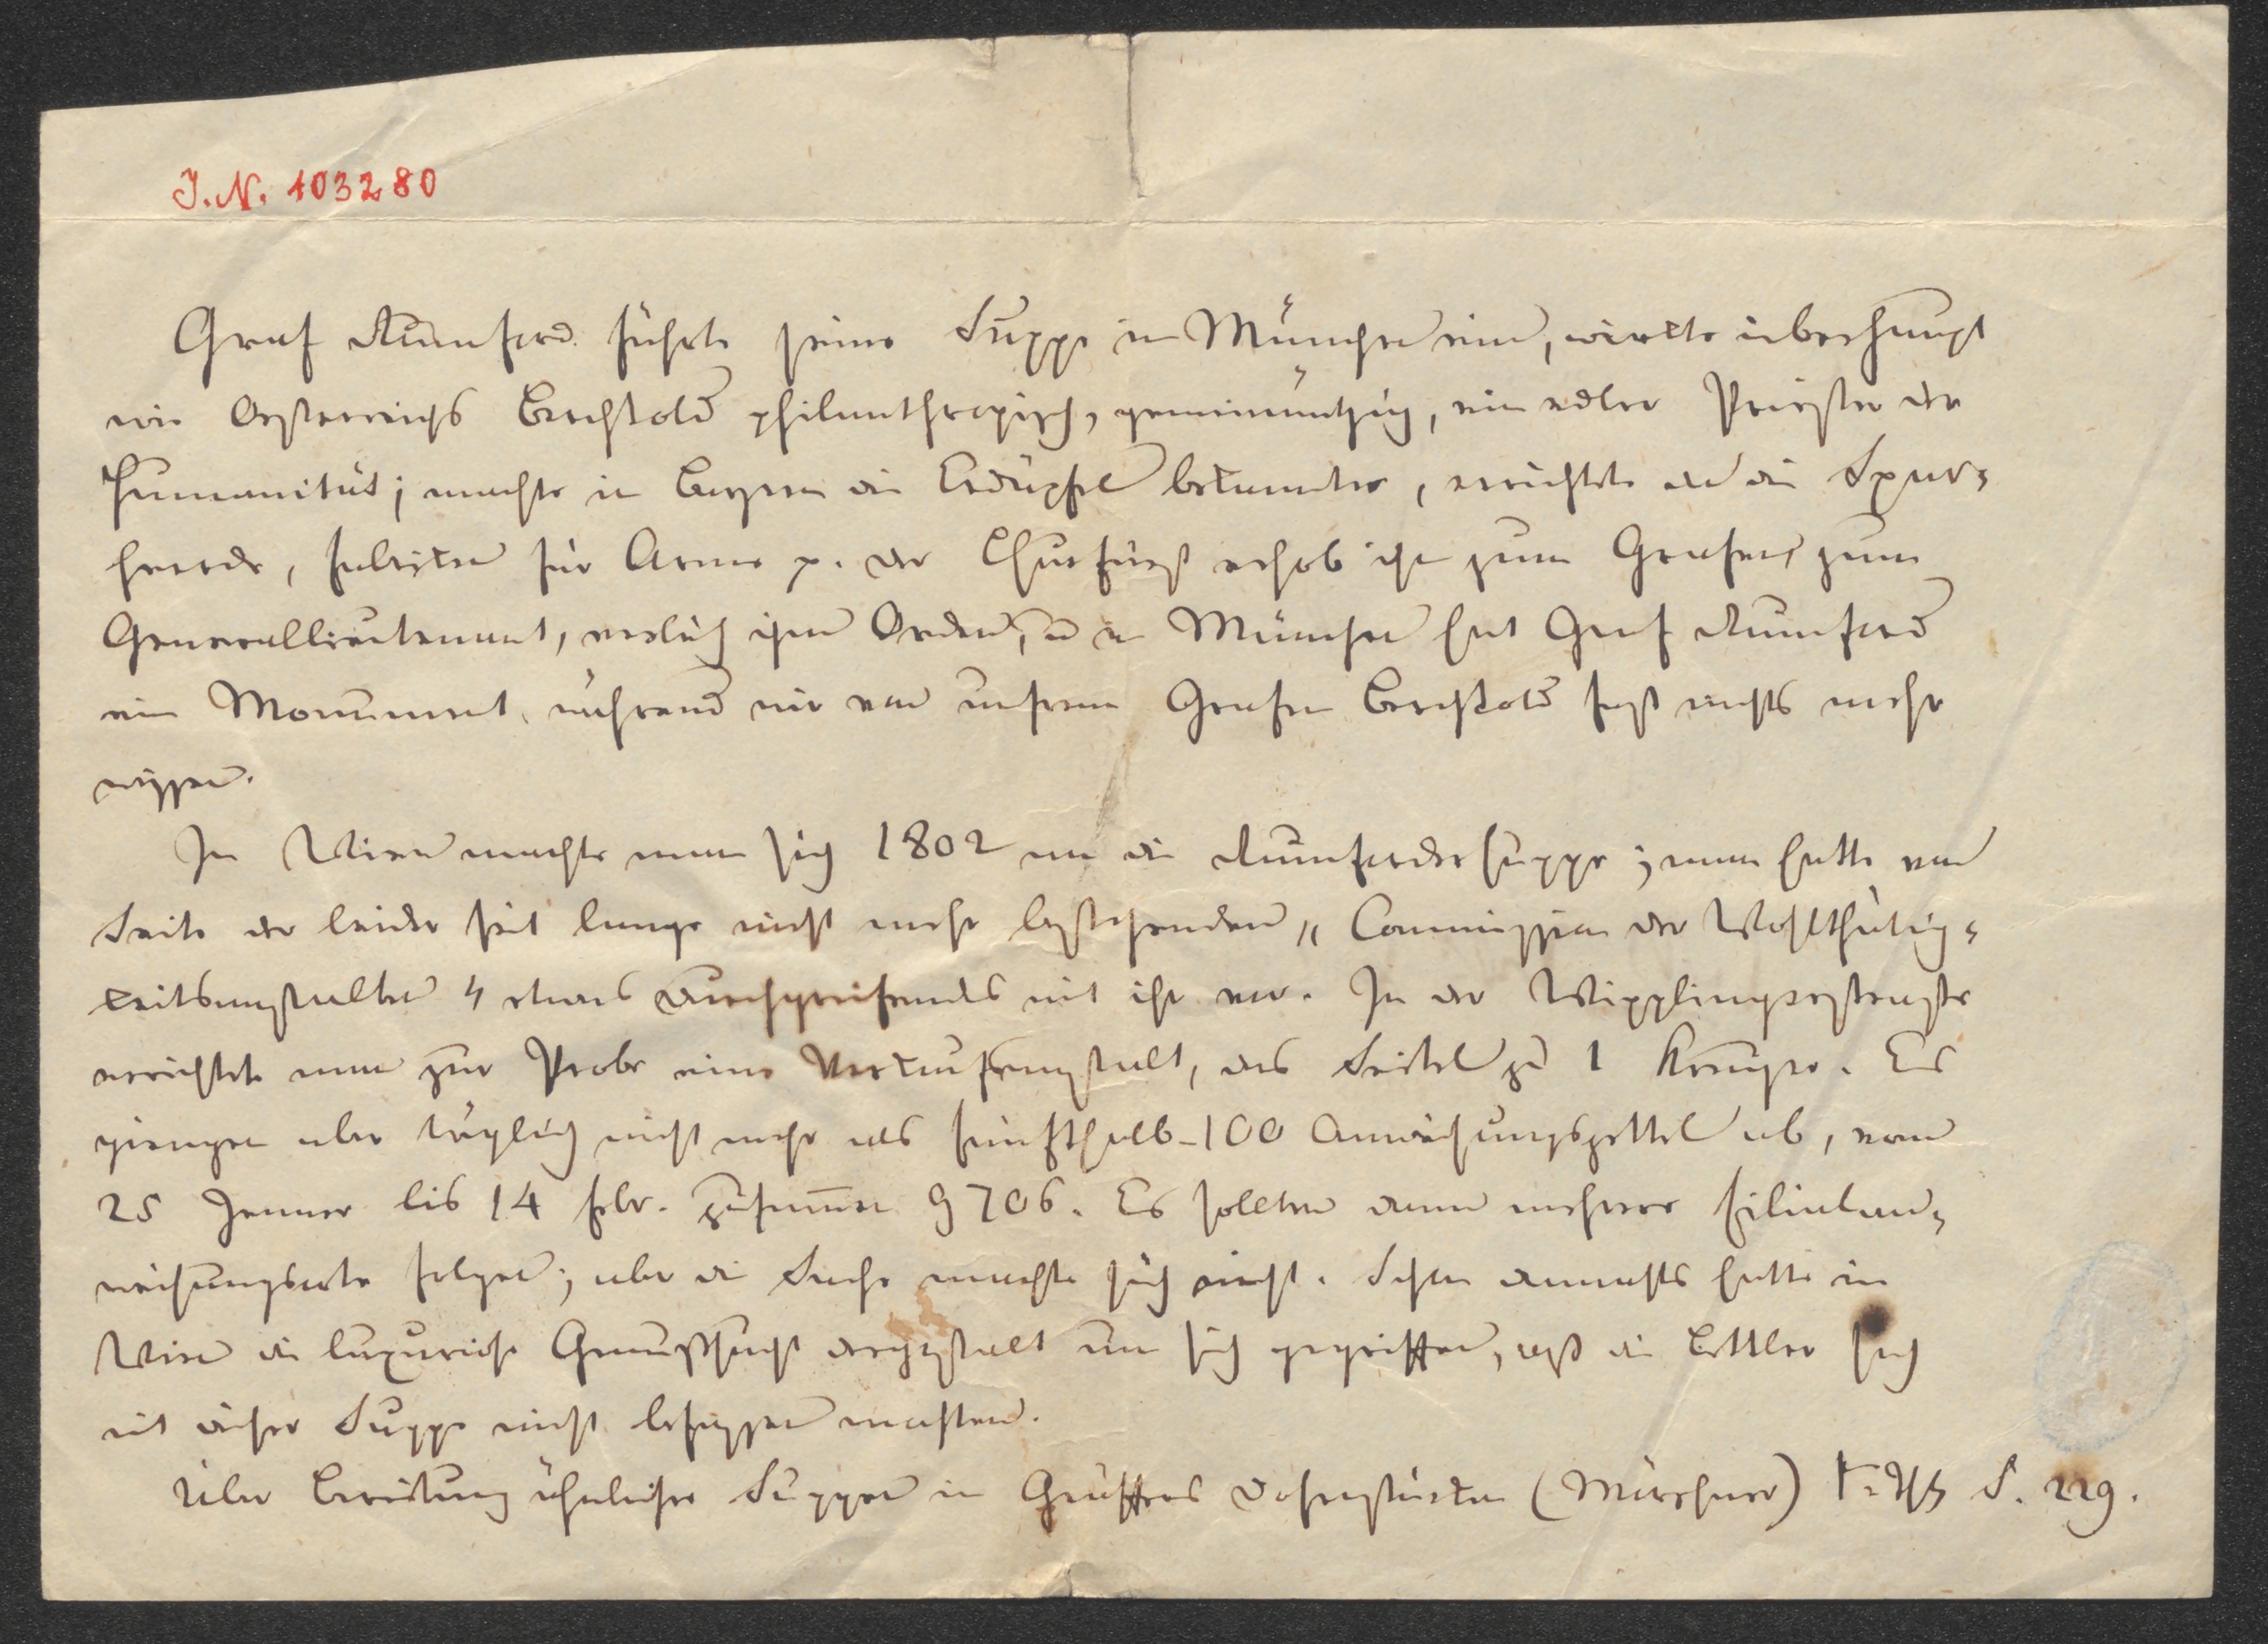 J. N. 103280
Graf Rumford führte seine Suppe in München ein, wirkte überhaupt
wie Oesterreichs Berchtold philanthropisch, gemeinnützig, ein edler Priester der
Humanität; machte in Bayern die Erdäpfel bekannter, errichtete da die Spar-
heerde, Fabriken für Arme p. der Churfürst erhob ihn zum Grafen, zum
Generallieutenant, verlieh ihm Orden, u in München hat Graf Rumford
ein Monument, während wir von unserm Grafen Berchtold fast nichts mehr
wissen.
In Wien machte man sich 1802 an die Rumfordersuppe; man hatte von
Seite der leider seit lange nicht mehr bestehenden „Commission der Wohlthätig-
keitsanstalten" etwas durchgreifendes mit ihr vor. In der Wipplingerstrasse
errichtete man zur Probe eine Verkaufsanstalt, das Seitel zu 1 Kreuzer. Es
giengen aber täglich nicht mehr als fünfthalb-100 Anweisungszettel ab, vom
25 Jenner bis 14 febr. zusam̅en 9706. Es sollten dann mehrere Filialan-
weisungsorte folgen; aber die Sache machte sich nicht. Schon damahls hatte in
Wien die luxuriose Genußsucht dergestalt um sich gegriffen, daß die Bettler sich
mit dieser Suppe nicht befassen mochten.
Über Bereitung ähnlicher Suppen in Gräffers Dosenstücken (Märchner) S. 229.